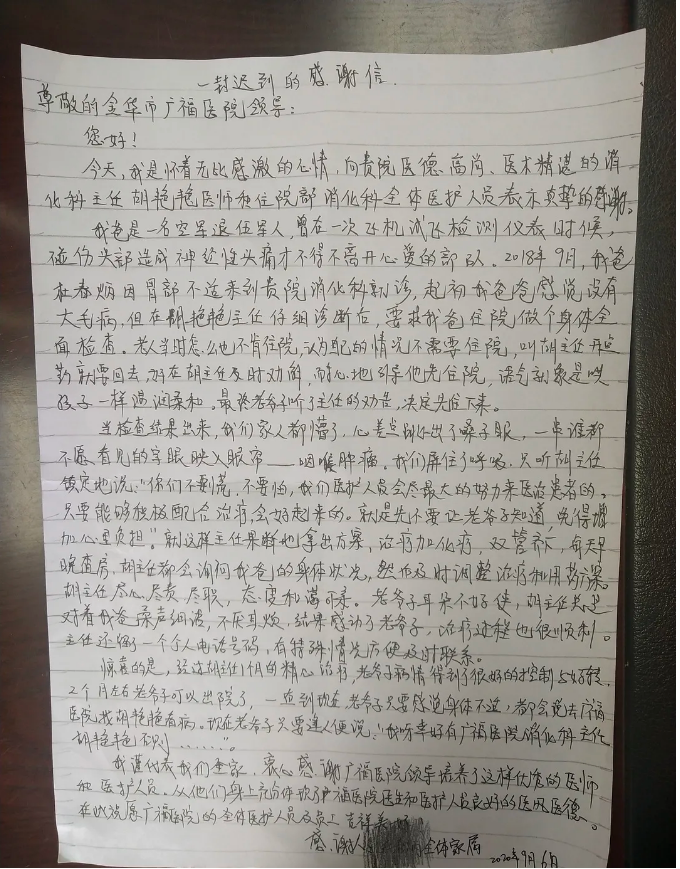 一封迟到的感谢信.
尊敬的金华市广福医院领导：
您好！
今天，我是怀着无比感激的心情，向贵院医德高尚、医术精湛的消
化科主任胡艳艳医师和住院部消化科全体医护人员表示真挚的感谢。
我爸是一名空军退任军人，曾在一次飞机试飞检测仪表时候，
碰伤头部造成神经性头痛才不得不离开心爱的部队。2018年9月，我爸
因胃部不适来到贵院消化科就诊，起初我爸爸感觉没有
大毛病，但在胡艳艳主任仔细诊断后，要求我爸住院做个身体全
面检查。老人当时怎么也不肯住院，认为自己的情况不需要住院，叫胡主任开点
药就要回去，好在胡主任及时劝解，耐心地引导他先住院，语气就象是哄
孩子一样温润柔和。最终老爷子听了主任的劝告，决定先住下来。
当检查结果出来，我们家人都懵了，心差点别从出了嗓子眼，一串谁都
不愿看见的字眼映入眼帘——咽喉肿瘤。我们屏住了呼吸，只听胡主任
镇定地说："你们不要慌，不要怕，我们医护人员会尽最大的努力来医治患者的。
只要能够积极配合治疗，会好起来的。就是先不要让老爷子知道，免得增
加心里负担"。就这样主任果断地拿出方案，治疗加化疗，双管齐下，每天早
晚查房，胡主任都会询问我爸的身体状况，然后及时调整治疗和用药。
胡主任尽心、尽责、尽职，态度和蔼可亲。老爷子耳朵不好使，胡主任总是
对着我爸柔声细语，不厌其烦，结果感动了老爷子，治疗过程也很顺利。
主任还留了一个个人电话号码，有特殊情况方便及时联系。
惊喜的是，经过胡主任1个月的精心治疗，老爷子病情得到了很好的控制与好转，
2个月左右老爷子可以出院了，一直到现在，老爷子只要感觉身体不适，都会说去广福
医院找胡艳艳看病。现在老爷子只要逢人便说："我呀幸好有广福医院消化科主任
胡艳艳，否则………"。
我谨代表我们全家，衷心感谢广福医院领导培养了这样优秀的医师
和医护人员。从他们身上充分体现了广福医院医生和医护人员良好的医风医德。
在此祝愿广福医院的全体医护人员及员工吉祥美好。
感谢人 全体家属
2020年9月6日